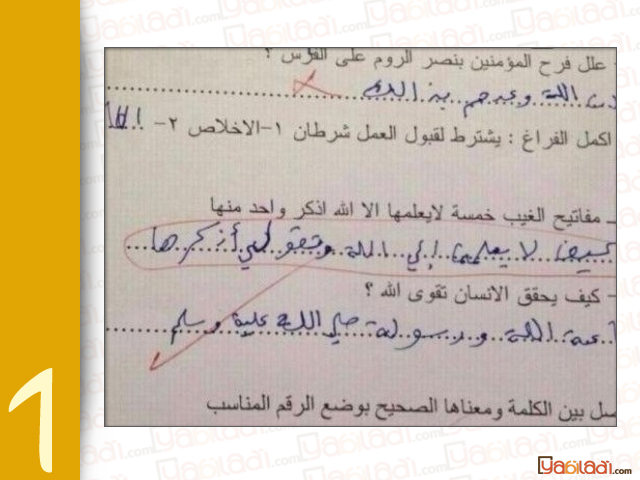 علل فرح المؤمنين بنصر الروم على الفرس ؟
الله وعدهم بذالك
اكمل الفراغ : يشترط لقبول العمل شرطان ١-الاخلاص ٢-
ـ مفاتيح الغيب خمسة لايعلمها الا الله اذكر واحد منها
كييف لا يعلمها إلى اللة وتقولي أذكرها
- كيف يحقق الانسان تقوى الله ؟
اللة ورسولة صلى الله علية وسلم
صل بين الكلمة ومعناها الصحيح بوضع الرقم المناسب
1
Yabiladi.com